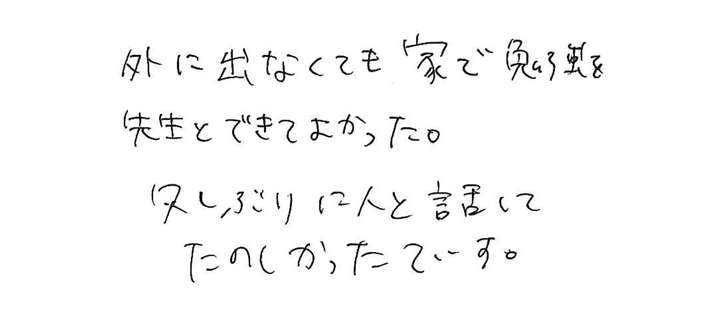 外に出なくても家で勉強を
先生とできてよかった。
久しぶりに人と話して
たのしかったでいす。